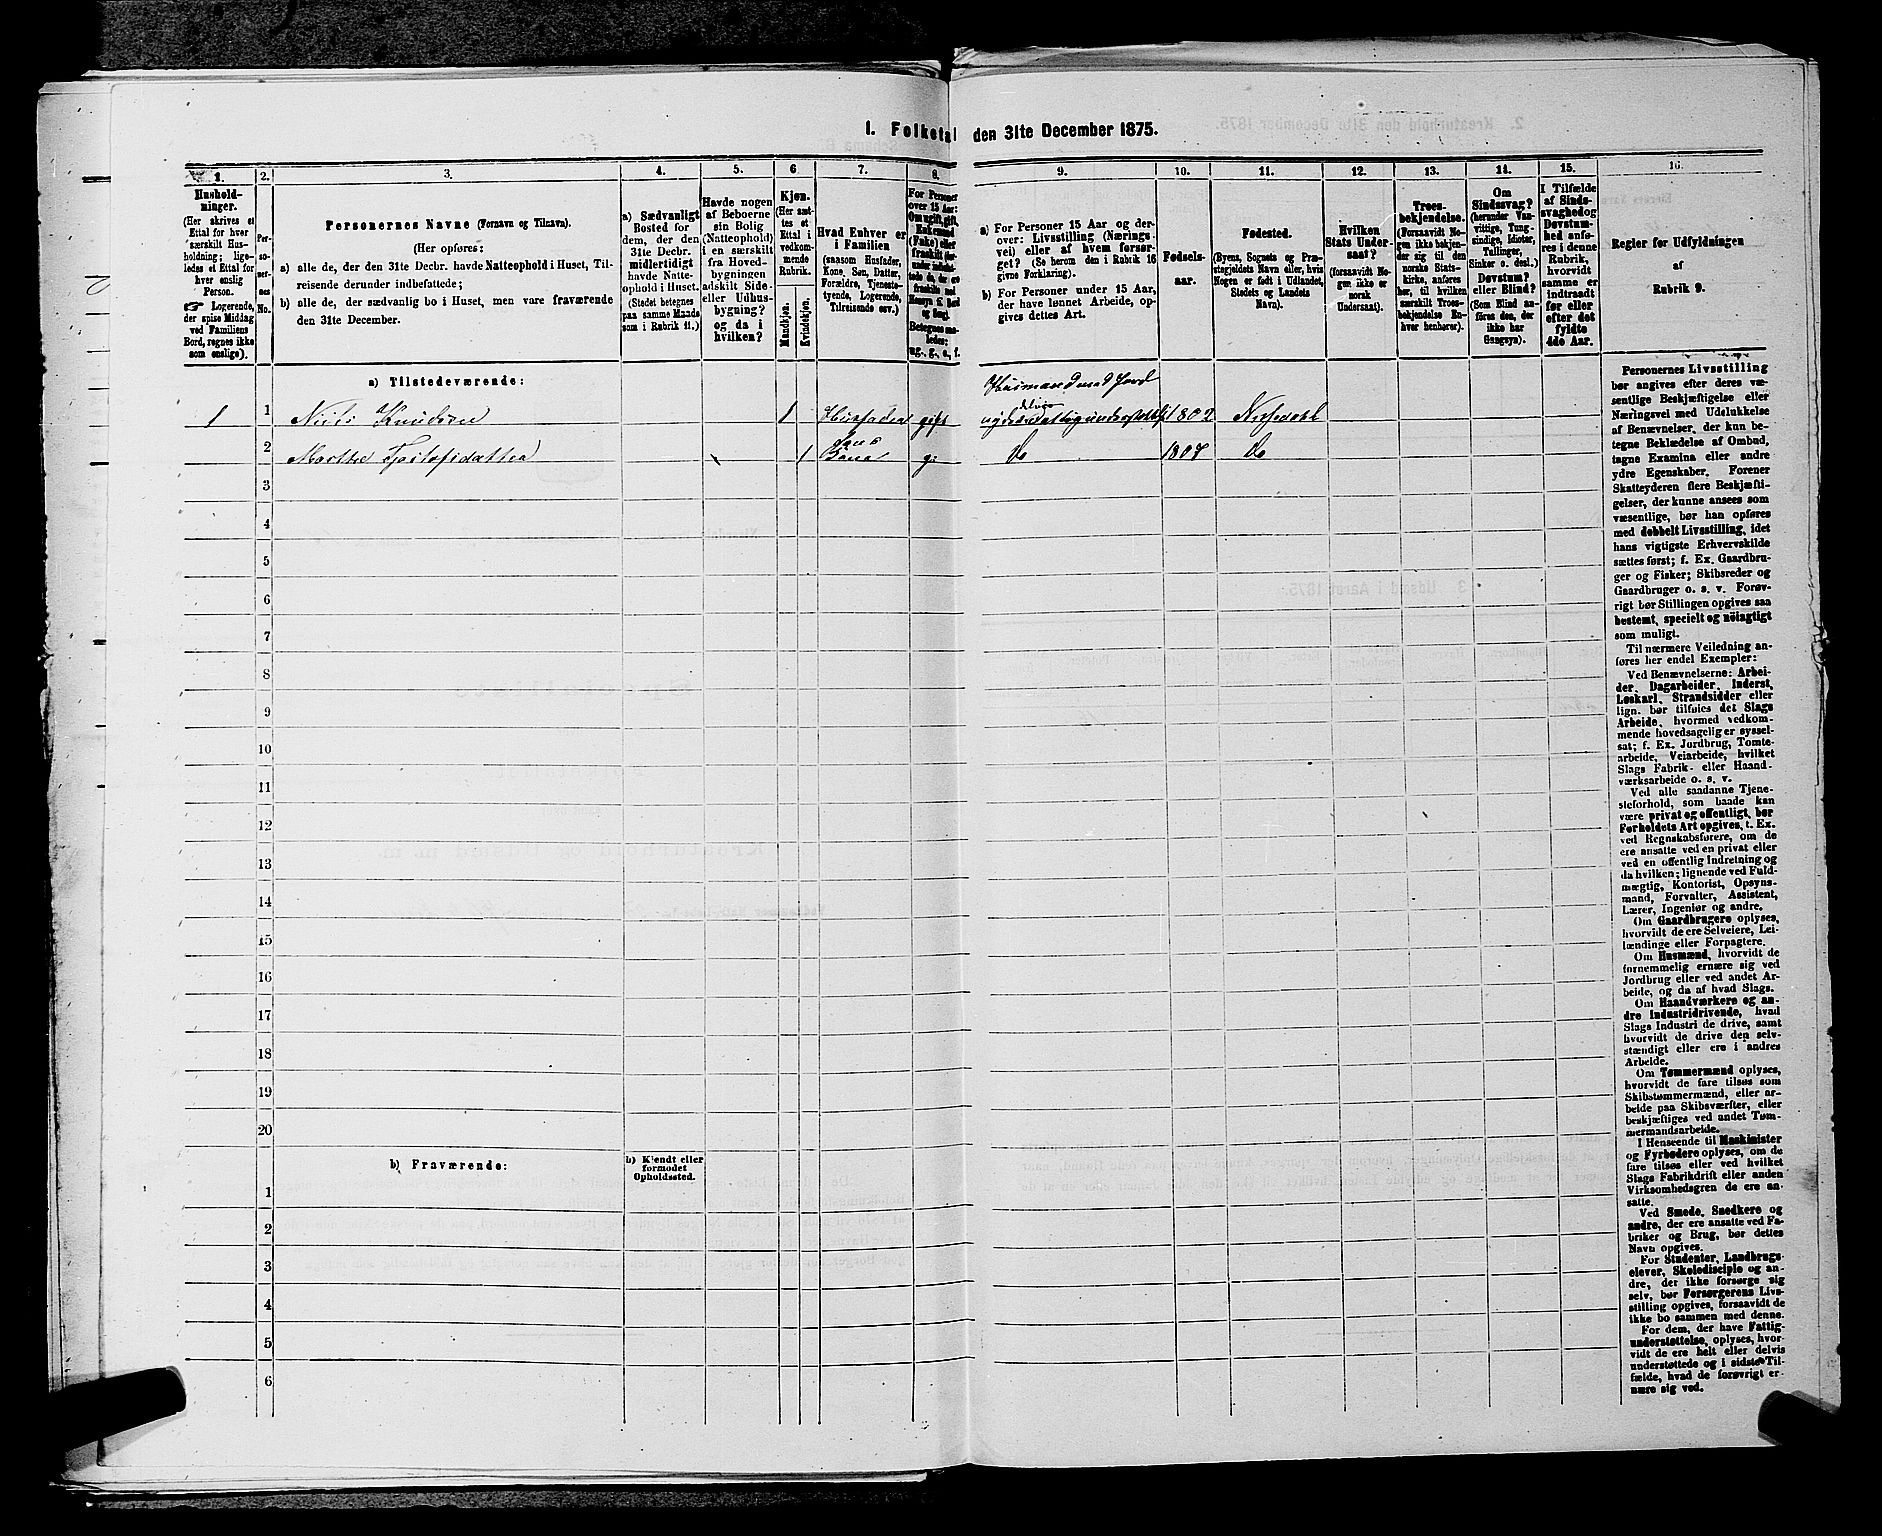 1. Folketal den 31te December 1875.
1.
Hushold-
ninger.
(Her skrives et
Ettal for hver
særskilt Hus-
holdning; lige-
ledes et Ettal for
hver enslig
Person.
☞ Logerende,
der spise Middag
ved Familiens
Bord, regnes ikke
som enslige).
2.
Per-
so-
ner-
nes
No.
3.
Personernes Navne (Fornavn og Tilnavn).
(Her opføres:
a) alle de, der den 31te Decbr. havde Natteophold i Huset, Til-
reisende derunder indbefattede;
b) alle de, der sædvanlig bo i Huset, men vare fraværende
den 31te December.
4.
a) Sædvanligt
Bosted for
dem, der den
31te Decbr.
midlertidigt
havde Natte-
ophold i Huset.
(Stedet betegnes
paa samme Maade
som i Rubrik 11.)
5.
Havde nogen
af Beboerne
sin Bolig
(Natteophold)
i en særskilt
fra Hoved-
bygningen
adskilt Side-
eller Udhus-
bygning?
og da i
hvilken?
6
Kjøn.
(Her sæt-
tes et
Ettal i
vedkom-
mende
Rubrik.
Mandkjøn.
Kvindekjøn.
7.
Hvad Enhver er
i Familien
(saasom Husfader,
Kone, Søn, Datter,
Forældre, Tjeneste-
tyende, Logerende,
Tilreisende osv.)
8.
For Personer
over 15 Aar:
Om ugift, gift,
Enkemand
(Enke) eller
fraskilt
Betegnes saa-
ledes:
ug., g., e., f.
9.
a) For Personer 15 Aar og der-
over: Livsstilling (Nærings-
vei) eller af hvem forsør-
get? (Se herom den i Rubrik 16
givne Forklaring).
b) For Personer under 15 Aar,
der have lønnet Arbeide, op-
gives dettes Art.
10.
Fødsels-
aar.
11.
Fødested.
(Byens, Sognets og Præ-
stegjeldets Navn eller, hvis
Nogen er født i Udlandet,
Stedets og Landets
Navn).
12.
Hvilken
Stats Under-
saat?
(forsaavidt No-
gen ikke er
norsk
Undersaat).
13.
Troes-
bekjendelse.
(Forsaavidt No-
gen ikke bekjen-
der sig til den
norske Stats-
kirke, anføres
her, til hvilken
særskilt Troes-
bekjendelse En-
hver henhører).
14.
Om
Sindssvag?
(herunder Van-
vittige, Tung-
sindige, Idioter,
Tullinger,
Sinker o. desl.)
Døvstum?
eller Blind?
(Som Blind an-
føres den, der
ikke har
Gangsyn).
15.
I Tilfælde
af Sinds-
svaghed og
Døvstum-
hed anfø-
res i denne
Rubrik,
hvorvidt
samme er
indtraadt
før eller
efter det
fyldte
4de Aar.
16.
Regler for Udfyldningen
af
Rubrik 9.
a) Tilstedeværende:
Husmand med Jord
1 1 Niels Knudsen 1 Husfader gift nyder delvis Fattigunderstøttelse 1802 Nissedal
2 Marthe 1 Hans Kone g: Do 1807 Do
3
4
5
6
7
8
9
10
11
12
13
14
15
16
17
18
19
20
b) Fraværende:
b) Kjendt eller
formodet
Opholdssted.
1
2
3
4
5
6
Personernes Livsstilling
bør angives efter deres væ-
sentlige Beskjæftigelse eller
Næringsvei med Udelukkelse
af Benævnelser, der kun be-
tegne Beklædelse af Ombud,
tagne Examina eller andre
ydre Egenskaber. Forener
Skatteyderen flere Beskjæfti-
gelser, der kunne ansees som
væsentlige, bør han opføres
med dobbelt Livsstilling, idet
hans vigtigste Erhvervskilde
sættes først; f. Ex. Gaardbru-
ger og Fisker; Skibsreder og
Gaardbruger o. s. v. Forøv-
rigt bør Stillingen opgives saa
bestemt, specielt og nöiagtigt
som muligt.
Til nærmere Veiledning an-
føres her endel Exempler:
Ved Benævnelserne: Arbei-
der, Dagarbeider, Inderst,
Løskarl, Strandsidder eller
lign. bør tilføies det Slags
Arbeide, hvormed vedkom-
mende hovedsagelig er syssel-
sat; f. Ex. Jordbrug, Tomte-
arbeide, Veiarbeide, hvilket
Slags Fabrik- eller Haand-
værksarbeide o. s. v.
Ved alle saadanne Tjene-
steforhold, som baade kan
være privat og offentligt, bør
Forholdets Art opgives, t. Ex.
ved Regnskabsførere, om de
ere ansatte ved en privat eller
ved en offentlig Indretning og
da hvilken; lignende ved Fuld-
mægtig, Kontorist, Opsyns-
mand, Forvalter, Assistent,
Lærer, Ingeniør og andre.
Om Gaardbrugere oplyses,
hvorvidt de ere Selveiere, Lei-
lændinge eller Forpagtere.
Om Husmænd, hvorvidt de
fornemmelig ernære sig ved
Jordbrug eller ved andet Ar-
beide, og da af hvad Slags.
Om Haandværkere og an-
dre Industridrivende, hvad
Slags Industri de drive, samt
hvorvidt de drive den selv-
stændigt eller ere i andres
Arbeide.
Om Tømmermænd oplyses,
hvorvidt de fare tilsøs som
Skibstømmermænd, eller ar-
beide paa Skibsværfter, eller
beskjæftiges ved andet Tøm-
mermandsarbeide.
I Henseende til Maskinister
og Fyrbødere oplyses, om de
fare tilsøs eller ved hvilket
Slags Fabrikdrift eller anden
Virksomhedsgren de ere an-
satte.
Ved Smede, Snedkere og
andre, der ere ansatte ved Fa-
briker og Brug, bør dettes
Navn opgives.
For Studenter, Landbrugs-
elever, Skoledisciple og an-
dre, der ikke forsørge sig
selv, bør Forsørgerens Livs-
stilling opgives, forsaavidt de
ikke bo sammen med denne.
For dem, der have Fattig-
understøttelse, oplyses, hvor-
vidt de ere helt eller delvis
understøttede og i sidste Til-
fælde, hvad de forøvrigt er-
nære sig ved.